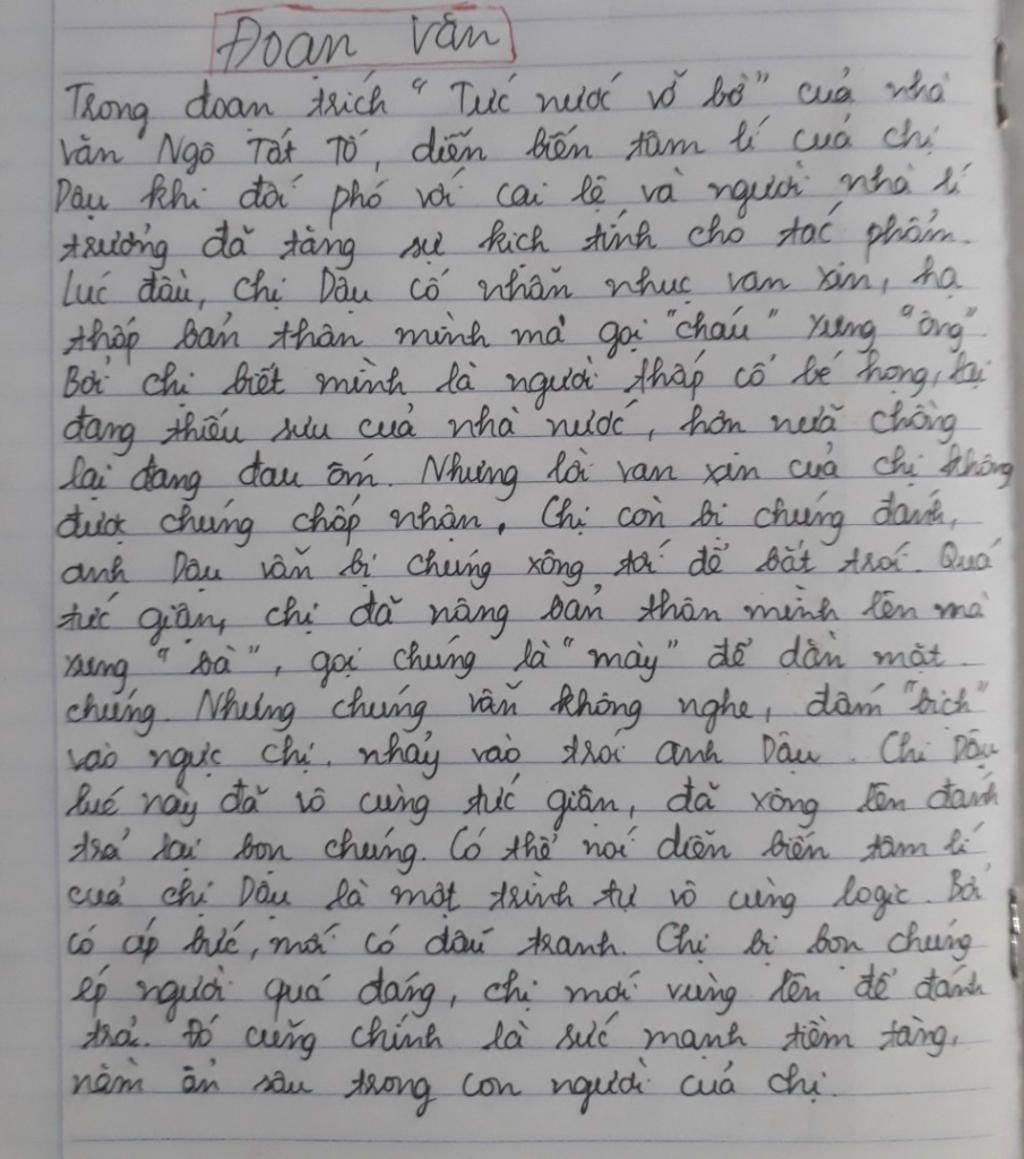 Đoạn văn
Trong đoạn trích "Tức nước vỡ bờ" của nhà
văn Ngô Tất Tố, diễn biến tâm lí của chị
Dậu khi đối phó với cai lệ và người nhà lí
trưởng đã tăng sự kịch tính cho tác phẩm.
Lúc đầu, chị Dậu cố nhẫn nhục van xin, hạ
thấp bản thân mình mà gọi "cháu" xưng "ông".
Bởi chị biết mình là người thấp cổ bé họng, lại
đang thiếu sưu của nhà nước, hơn nữa chồng
lại đang đau ốm. Nhưng lời van xin của chị không
được chúng chấp nhận. Chị còn bị chúng đánh,
anh Dậu vẫn bị chúng xông tới để bắt trói. Quá
tức giận, chị đã nâng bản thân mình lên mà
xưng "bà", gọi chúng là "mày" để dằn mặt
chúng. Nhưng chúng vẫn không nghe, đấm "bịch"
vào ngực chị, nhảy vào trói anh Dậu. Chị Dậu
lúc này đã vô cùng tức giận, đã xông lên đánh
trả lại bọn chúng. Có thể nói diễn biến tâm lí
của chị Dậu là một trình tự vô cùng logic. Bởi
có áp bức, mới có đấu tranh. Chị bị bọn chúng
ép người quá đáng, chị mới vùng lên để đánh
trả. Đó cũng chính là sức mạnh tiềm tàng,
nằm ẩn sâu trong con người của chị.